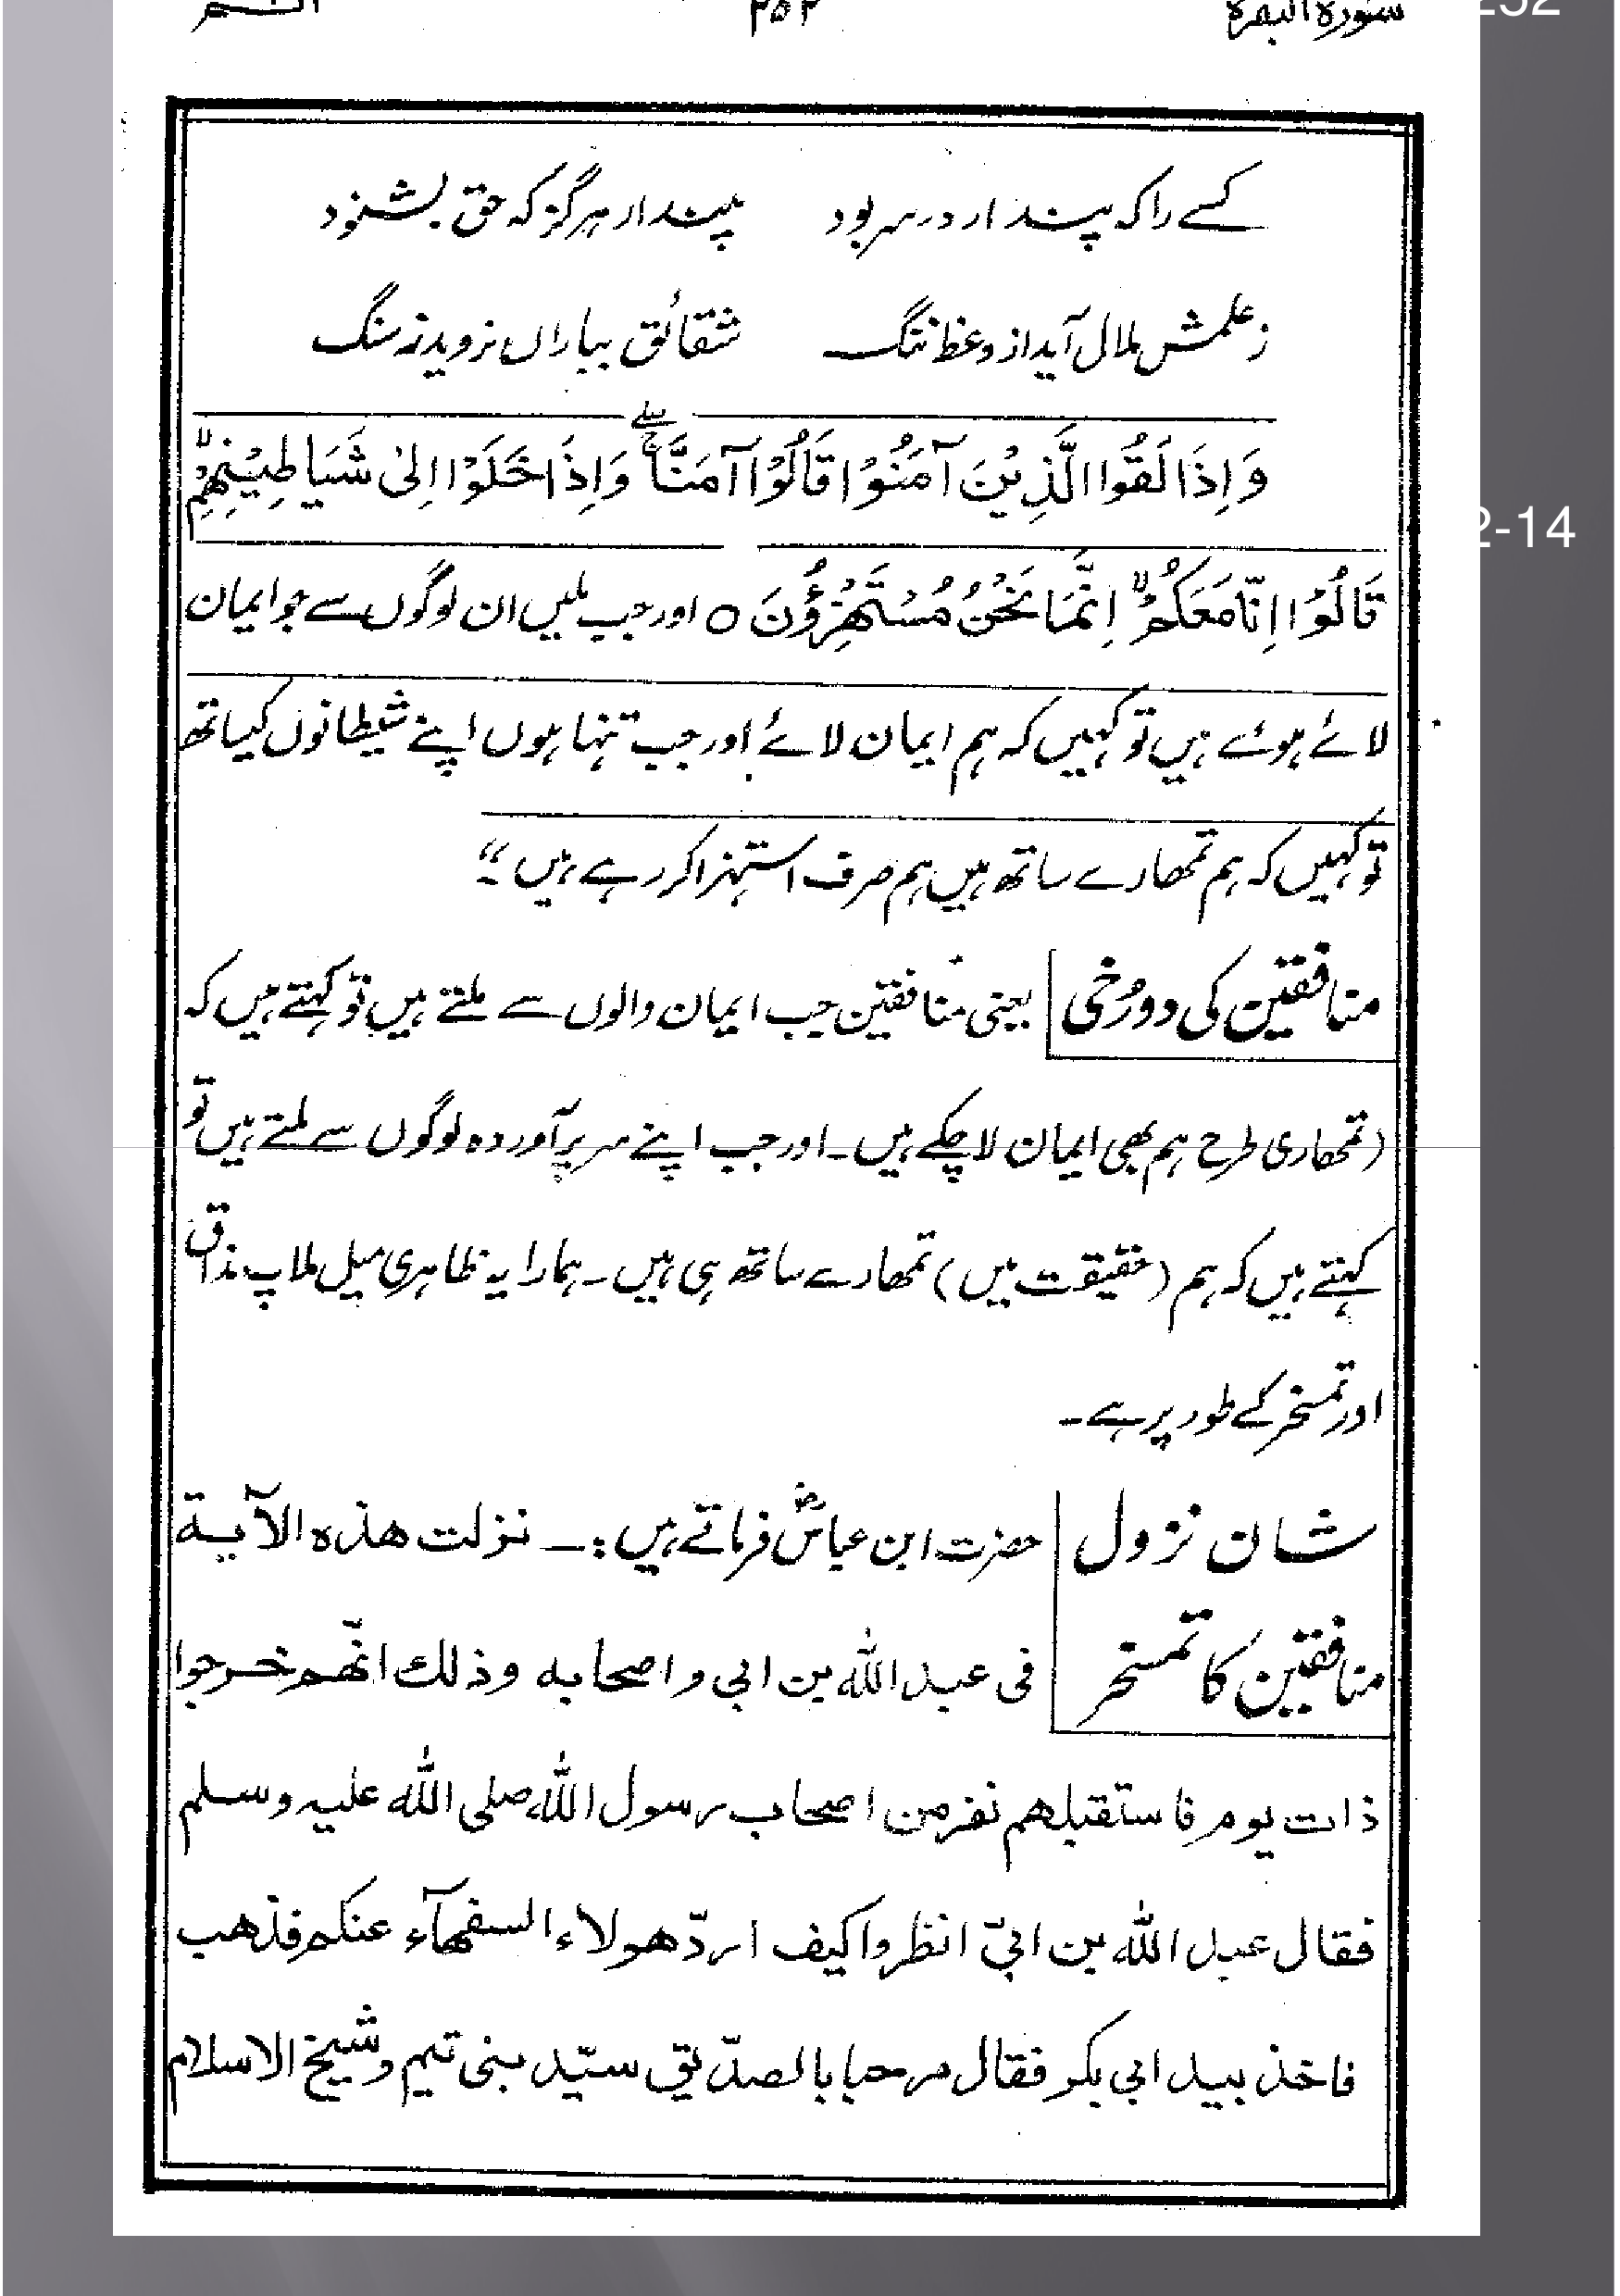 سورة البقرة ۲۵۲ الٓـمّـ
252
کسے را کہ پندار در سر بود پندار ہرگز کہ حق بشنود
ز علمش ملال آید از وعظ ننگ شقائق بباراں نروید ز سنگ
وَاِذَا لَقُوا الَّذِيْنَ آمَنُوْا قَالُوْا آمَنَّا ۚ وَاِذَا خَلَوْا اِلىٰ شَيَاطِيْنِهِمْ ۙ
2-14
قَالُوْا اِنَّا مَعَكُمْ ۙ اِنَّمَا نَحْنُ مُسْتَهْزِؤُنَ ○ اور جب ملیں ان لوگوں سے جو ایمان
لائے ہوئے ہیں تو کہیں کہ ہم ایمان لائے اور جب تنہا ہوں اپنے شیطانوں کیساتھ
تو کہیں کہ ہم تمھارے ساتھ ہیں ہم صرف استہزا کر رہے ہیں ۔“
منافقین کی دورُخی یعنی منافقین جب ایمان والوں سے ملتے ہیں تو کہتے ہیں کہ
(تمھاری طرح ہم بھی ایمان لا چکے ہیں ۔ اور جب اپنے سر برآوردہ لوگوں سے ملتے ہیں تو
کہتے ہیں کہ ہم (حقیقت میں) تمھارے ساتھ ہی ہیں ۔ ہمارا یہ ظاہری میل ملاپ مذاق
اور تمسخر کے طور پر ہے ۔
شان نزول حضرت ابن عباسؓ فرماتے ہیں :۔ نزلت هذه الآية
منافقین کا تمسخر فی عبد الله بن ابی و اصحابه وذلك انّهم خرجوا
ذات يوم فاستقبلهم نفر من اصحاب رسول الله صلی الله عليه وسلم
فقال عبد الله بن ابیّ انظروا كيف اردّ هولاء السفهآء عنكم فذهب
فاخذ بيد ابی بكر فقال مرحبا بالصدّيق سيّد بنی تيم وشيخ الاسلام